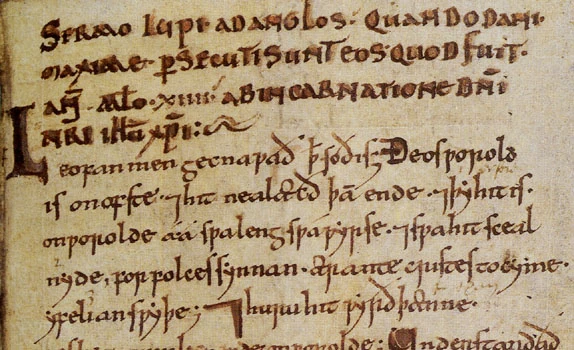 SERMO LUPI AD ANGLOS· QUANDO DANI·
MAXIME· ꝑSECUTI SUNT EOS· QUOD FUIT·
AN̄· M̄LO· XIIII· AB INCARNATIONE DN̄I
NRI IHU XPI:
Leofan men gecnapað þ̄ soð is; Ðeos ƿorold
is on ofste· ⁊ hit nealæcð þā ende· ⁊ þy hit is·
on ƿorolde aa sƿa leng sƿa ƿyrse· ⁊ sƿa hit sceal
nyde, for folces synnan· ær antecristes tocyme·
yfelian sƿyþe; ⁊ huru hit ƿyrð þænne·
on ƿorolde: Understandað